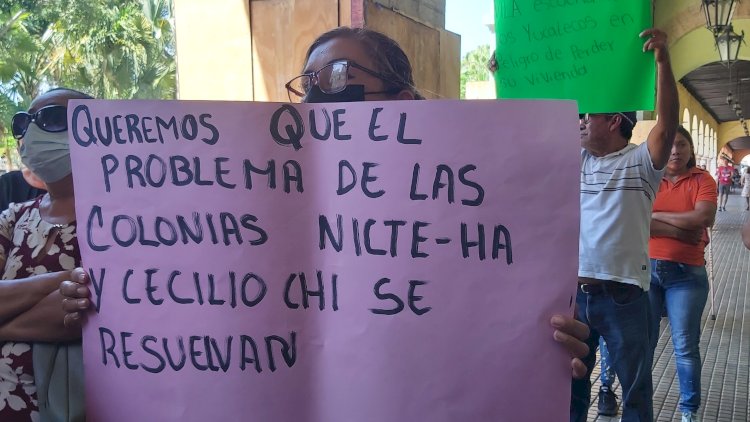 A ESCUCHA
os Yucatecos en
peligro de Perder
Su vivienda
QUEREMOS QUE EL
PROBLEMA DE LAS
COLONIAS NICTE-HA
Y CECILIO CHI SE
RESUELVAN